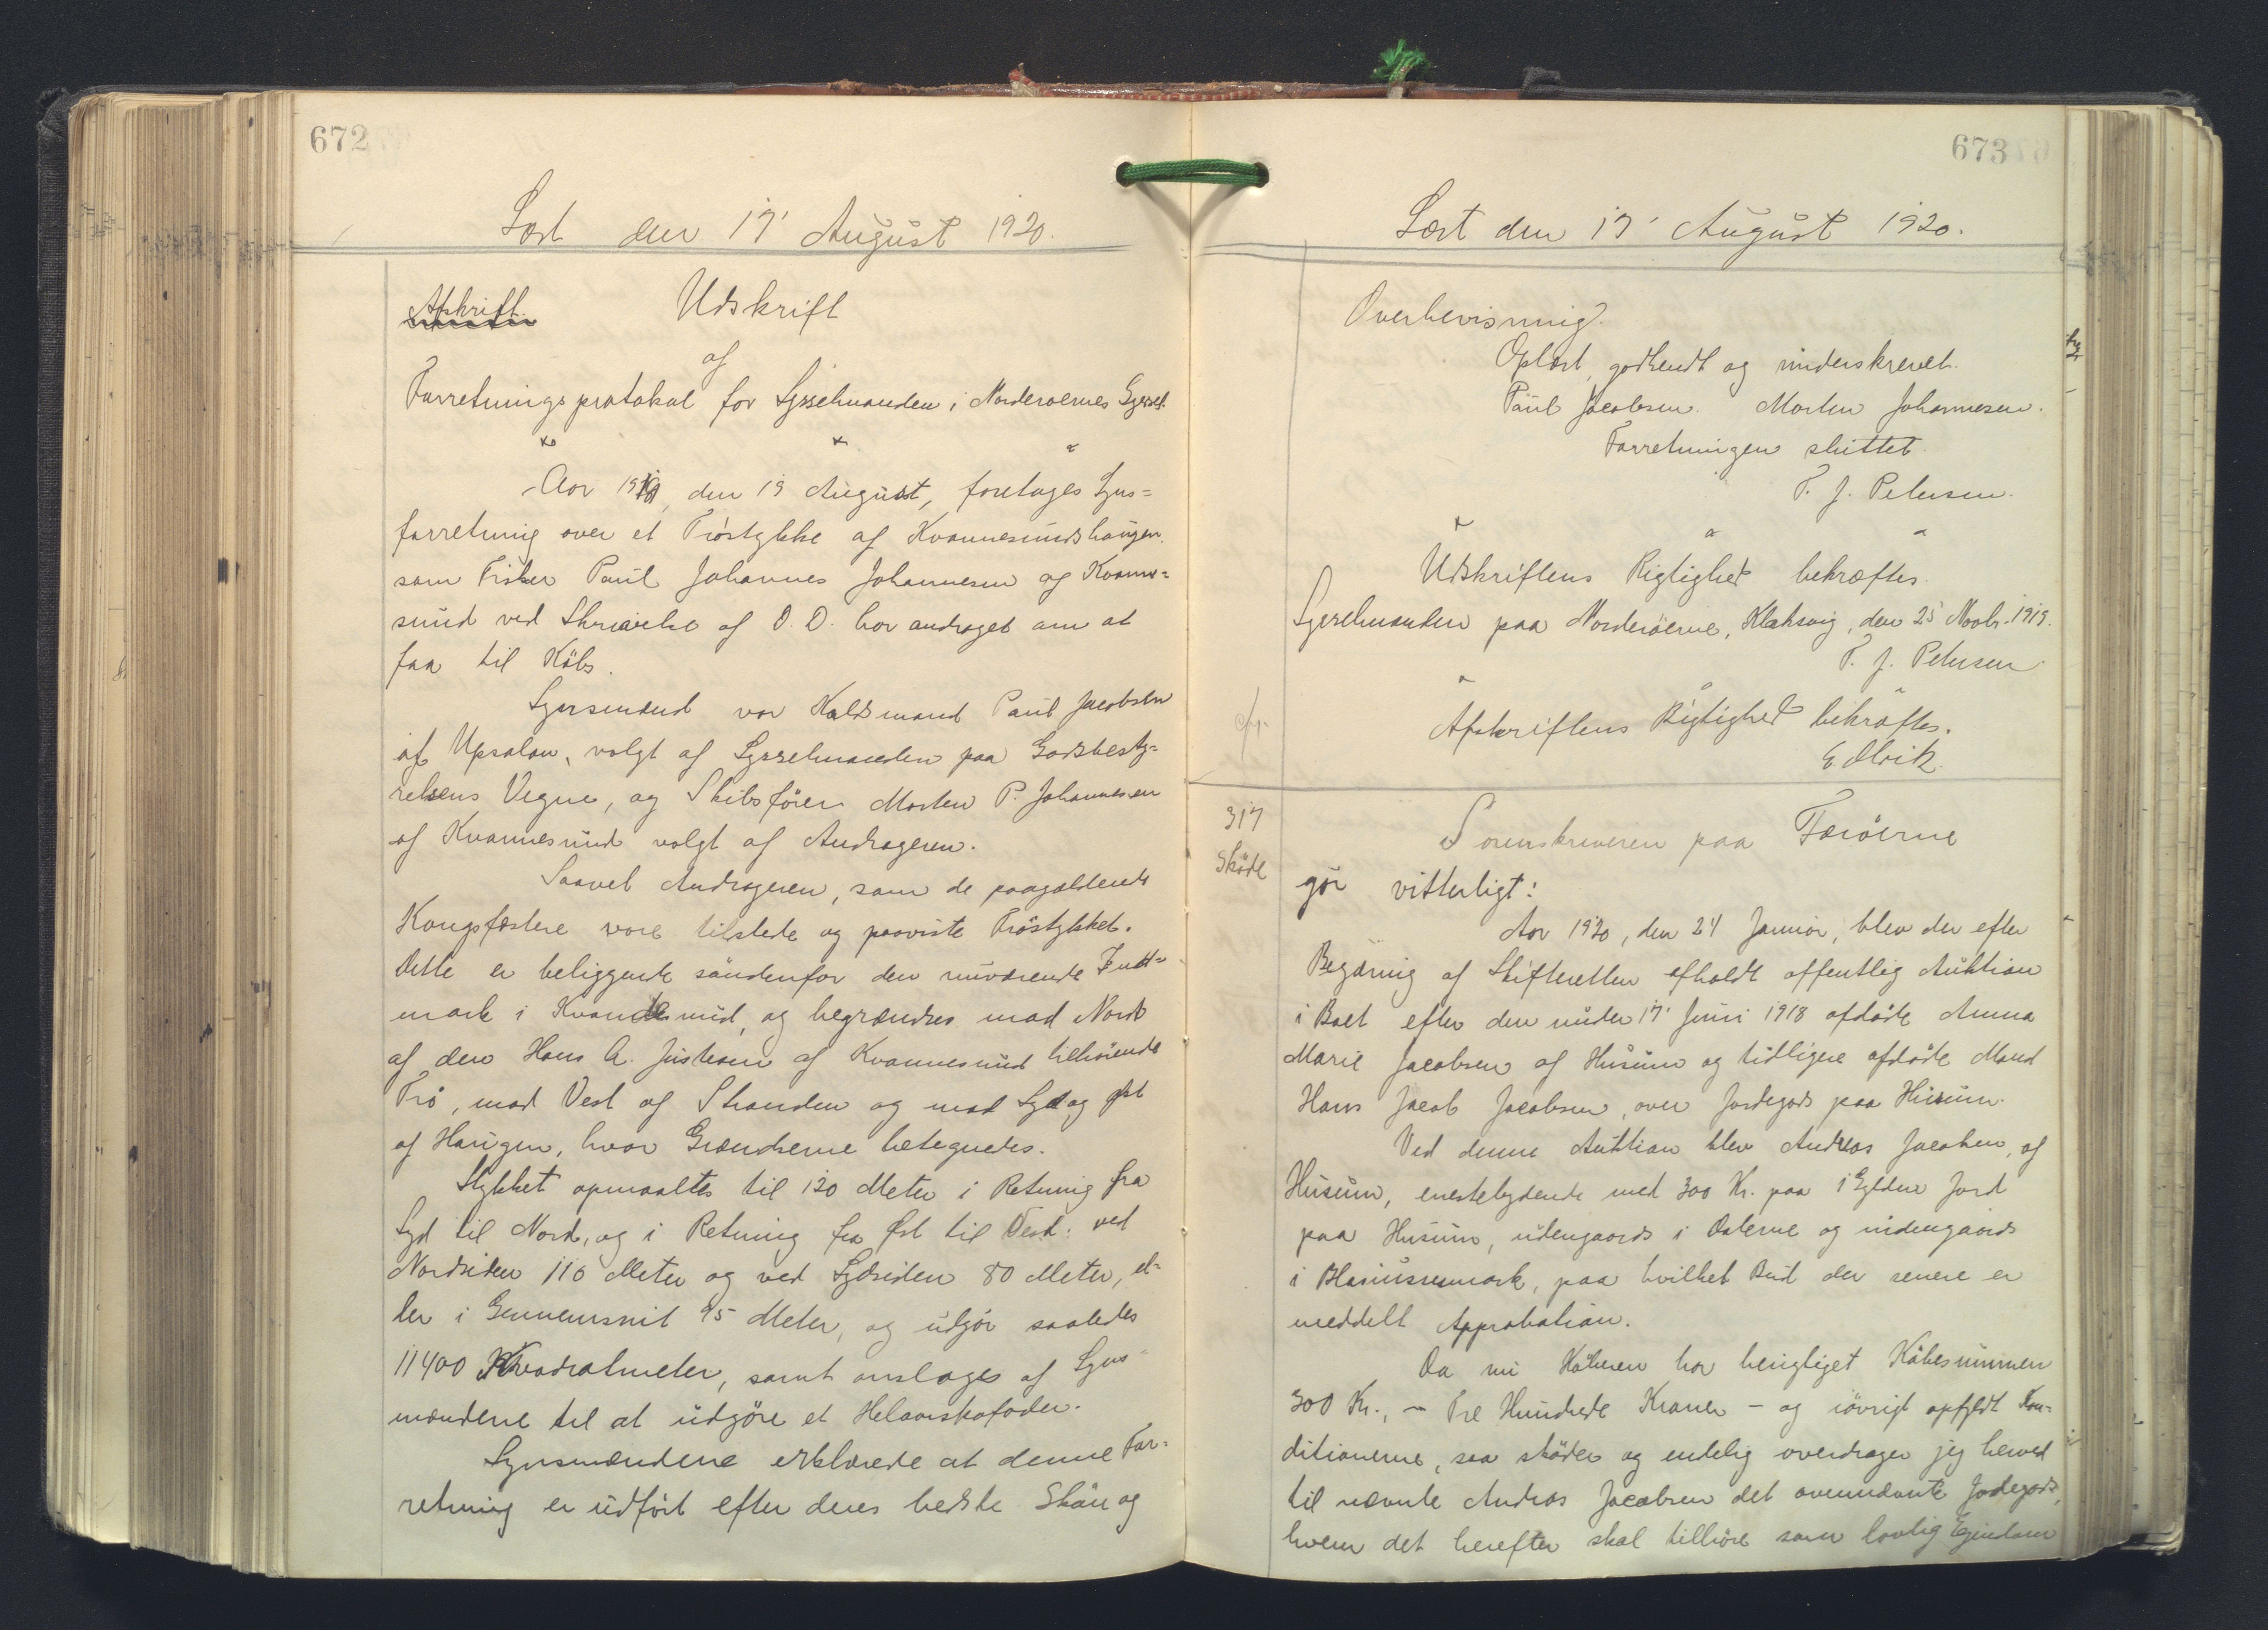 672
Læst den 17' August 1920.
Afskrift. Udskrift
af
Forretningsprotokol for Sysselmanden i Norderøernes Syssel.
Aar 1919, den 19 August, foretages Syns=
forretning over et Trøstykke af Kvannesundshaugen.
som Fisker Paul Johannes Johannesen af Kvanne=
sund ved Skrivelse af D. D. har andraget om at
faa til Købs.
Synsmænd var Kaldsmand Paul Jacobsen
af Upsalen, valgt af Sysselmanden paa Godsbesty=
relsens Vegne, og Skibsfører Morten P. Johannesen
af Kvannesund valgt af Andrageren.
Saavel Andrageren, som de paagældende
Kongsfæstere vare tilstede og paaviste Trøstykket.
Dette er beliggende søndenfor den nuværende Ind=
mark i Kvannesund, og begrændses mod Nord
af den Hans A. Justesen af Kvannesund tilhørende
Trø, mod Vest af Stranden og mod Syd og Øst
af Haugen, hvor Grændserne betegnedes.
Stykket opmaaltes til 120 Meter i Retning fra
Syd til Nord, og i Retning fra Øst til Vest: ved
Nordsiden 110 Meter og ved Sydsiden 80 Meter, el=
ler i Gennemsnit 95 Meter, og udgør saaledes
11400 Kvadratmeter, samt anslages af Syns=
mændene til at udgøre et Helaarskofoder.
Synsmændene erklærede at denne For=
retning er udført efter deres bedste Skøn og
673
Læst den 17' August 1920.
Overbevisning.
Oplæst, godkendt og underskrevet.
Paul Jacobsen. Morten Johannesen.
Forretningen sluttet.
T. J. Petersen.
Udskriftens Rigtighed bekræftes.
Sysselmanden paa Norderøerne, Klaksvig, den 25 Novbr. 1919.
T. J. Petersen.
Afskriftens Rigtighed bekræftes.
E. Mvik.
317
Skøde
Sorenskriveren paa Færøerne
gør vitterligt:
Aar 1920, den 24 Januar, blev der efter
Begæring af Skifteretten afholdt offentlig Auktion
i Boet efter den under 17' Juni 1918 afdøde Anna
Marie Jacobsen af Husum og tidligere afdøde Mand
Hans Jacob Jacobsen, over Jordegods paa Husum.
Ved denne Auktion blev Andreas Jacobsen, af
Husum, enestebydende med 300 Kr. paa 1 Gylden Jord
paa Husum, udengaards i Dalerne og indengaards
i Blasiussesmark, paa hvilket Bud der senere er
meddelt Approbation.
Da nu Køberen har berigtiget Købesummen
300 Kr., - Tre Hundrede Kroner - og iøvrigt opfyldt Kon=
ditionerne, saa skøder og endelig overdrager jeg herved
til nævnte Andreas Jacobsen det ovennævnte Jordegods,
hvem det herefter skal tilhøre som lovlig Ejendom